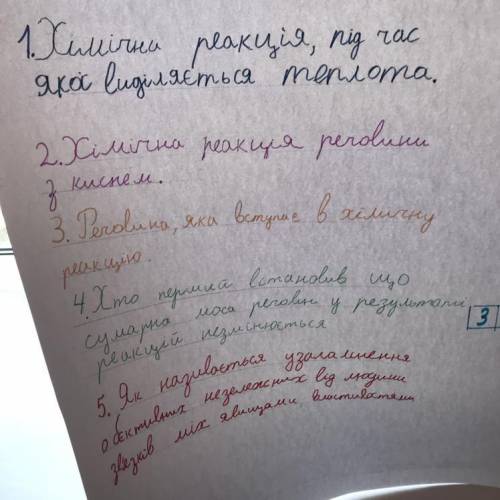 1. Хімічна реакція, під час
якої виділяється теплота.
2. Хімічна реакція речовини
з киснем.
3. Речовина, яка вступає в хімічну
реакцію.
4. Хто перший встановив що
сумарна маса речовин у результаті
реакцій незмінюється
3
5. Як називається узагальнення
обєктивних незалежних від людини
звязків між явищами, властивостями